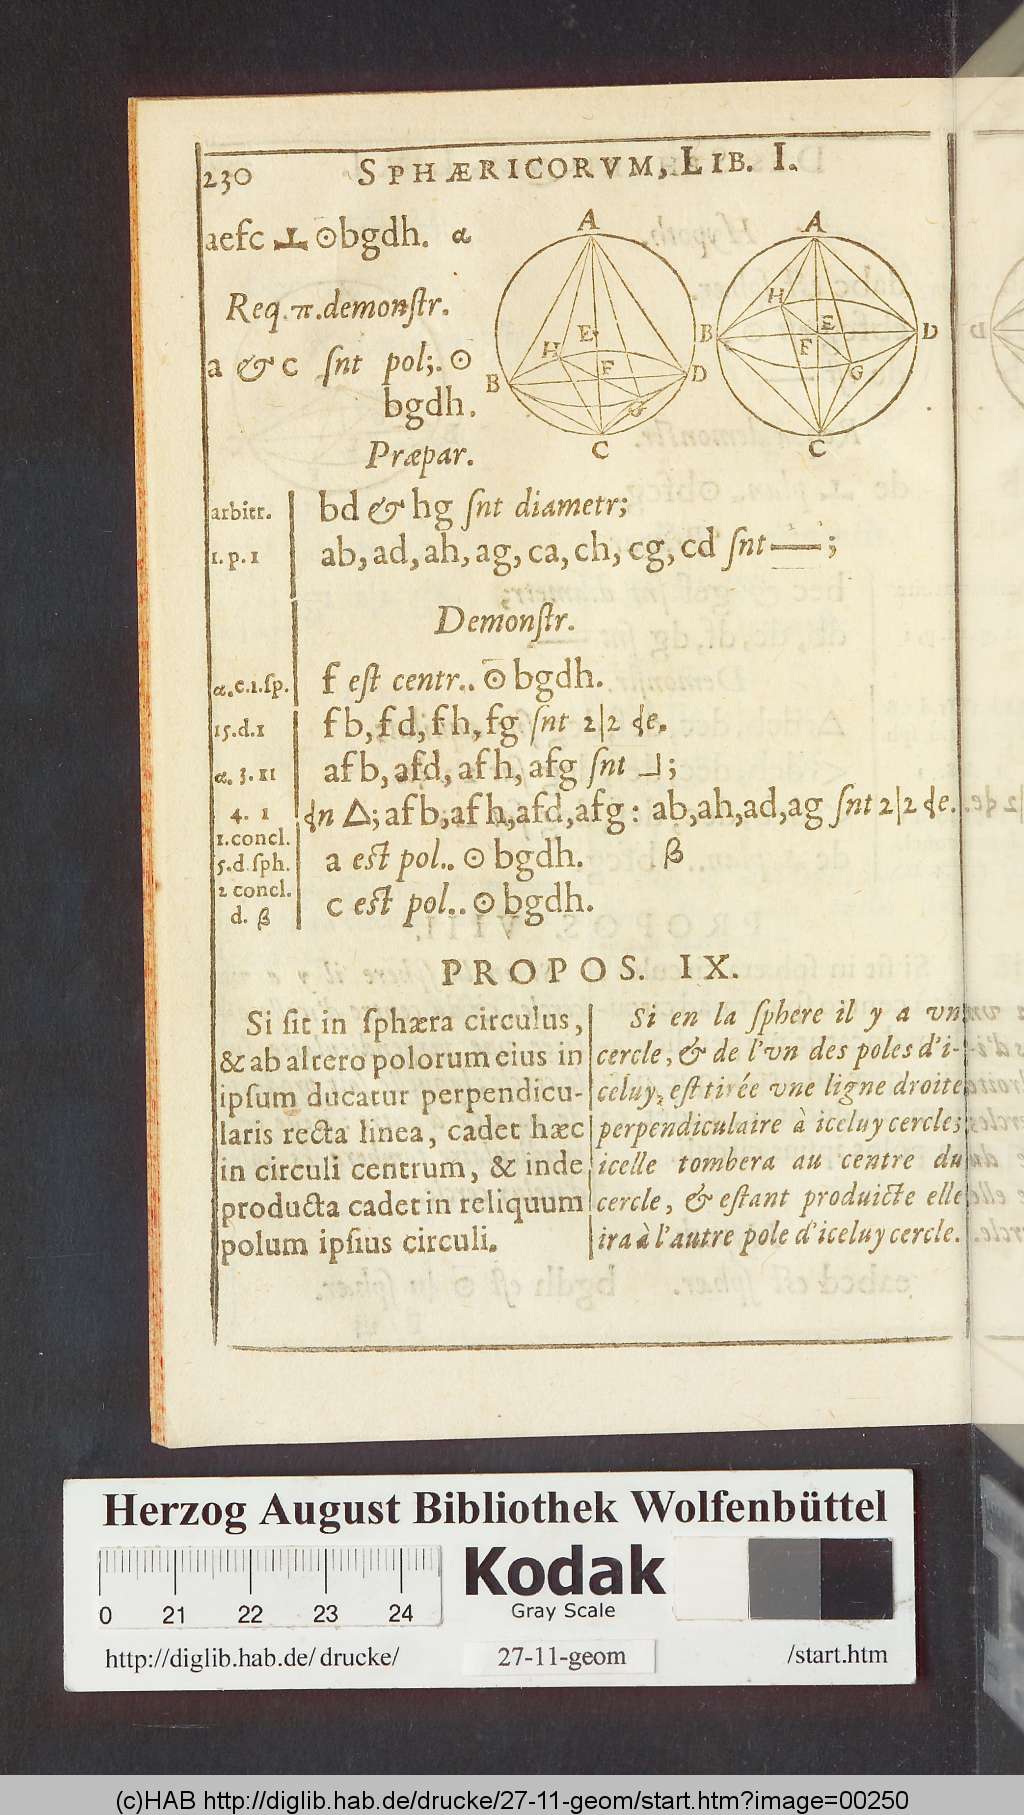 230 SPHÆRICORVM, LIB. I.
aefc ⊥ ⊙bgdh. α
Req. π. demonſtr.
a & c ſnt pol;. ⊙
bgdh.
Præpar.
A
B
H
E
F
D
G
C
A
B
H
E
F
D
G
C
arbitr. bd & hg ſnt diametr;
1. p. 1 ab, ad, ah, ag, ca, ch, cg, cd ſnt —;
Demonſtr.
α. c. 1. ſp. f eſt centr.. ⊙ bgdh.
15. d. 1 fb, fd, fh, fg ſnt 2|2 
α. 3. 11 afb, afd, afh, afg ſnt ⅃;
4. 1 △; afb, afh, afd, afg: ab, ah, ad, ag ſnt 2|2 
1. concl.
5. d ſph. a eſt pol.. ⊙ bgdh. β
2 concl.
d. β c eſt pol.. ⊙ bgdh.
PROPOS. IX.
Si ſit in ſphæra circulus,
& ab altero polorum eius in
ipſum ducatur perpendicu-
laris recta linea, cadet hæc
in circuli centrum, & inde
producta cadet in reliquum
polum ipſius circuli.
Si en la ſphere il y a vn
cercle, & de l'vn des poles d'i-
celuy, eſt tirée vne ligne droite
perpendiculaire à iceluy cercle;
icelle tombera au centre du
cercle, & eſtant produicte elle
ira à l'autre pole d'iceluy cercle.
Herzog August Bibliothek Wolfenbüttel
0 21 22 23 24
Kodak
Gray Scale
http://diglib.hab.de/ drucke/ 27-11-geom /start.htm
(c)HAB http://diglib.hab.de/drucke/27-11-geom/start.htm?image=00250